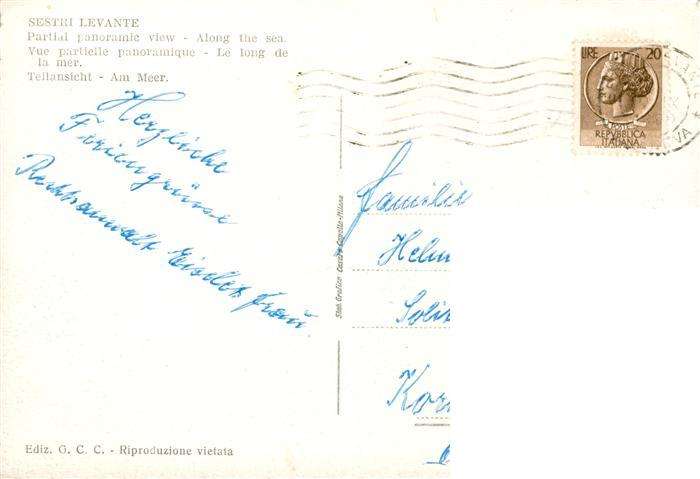 SESTRI LEVANTE
Partial panoramic view - Along the sea.
Vue partielle panoramique - Le long de
la mer.
Teilansicht - Am Meer.
LIRE 20
POSTE
REPVBBLICA
ITALIANA
Herzliche
Feriengrüsse
Rechtsanwalt Eisele Frau.
Familie
Helm
Kor
Stab. Grafico Cesare Capello - Milano
Ediz. G. C. C. - Riproduzione vietata